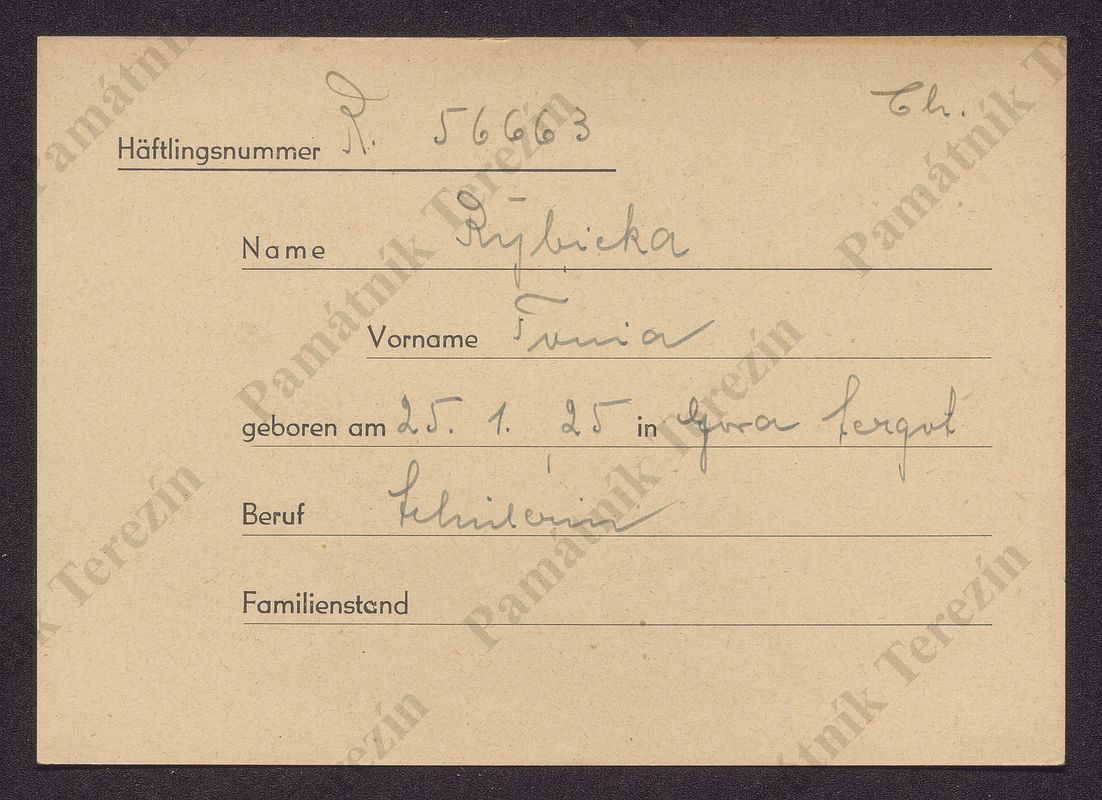 Ch.
Häftlingsnummer R. 56663
Name Rÿbicka
Vorname Tonia
geboren am 25. 1. 25 in Gora
Beruf Schülerin
Familienstand
Památník Terezín